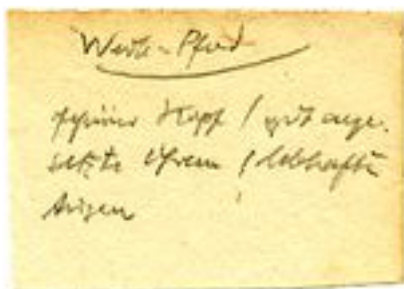 Werte-Pferd
schöner Kopf / gut ange-
setzte Ohren / lebhafte
Augen